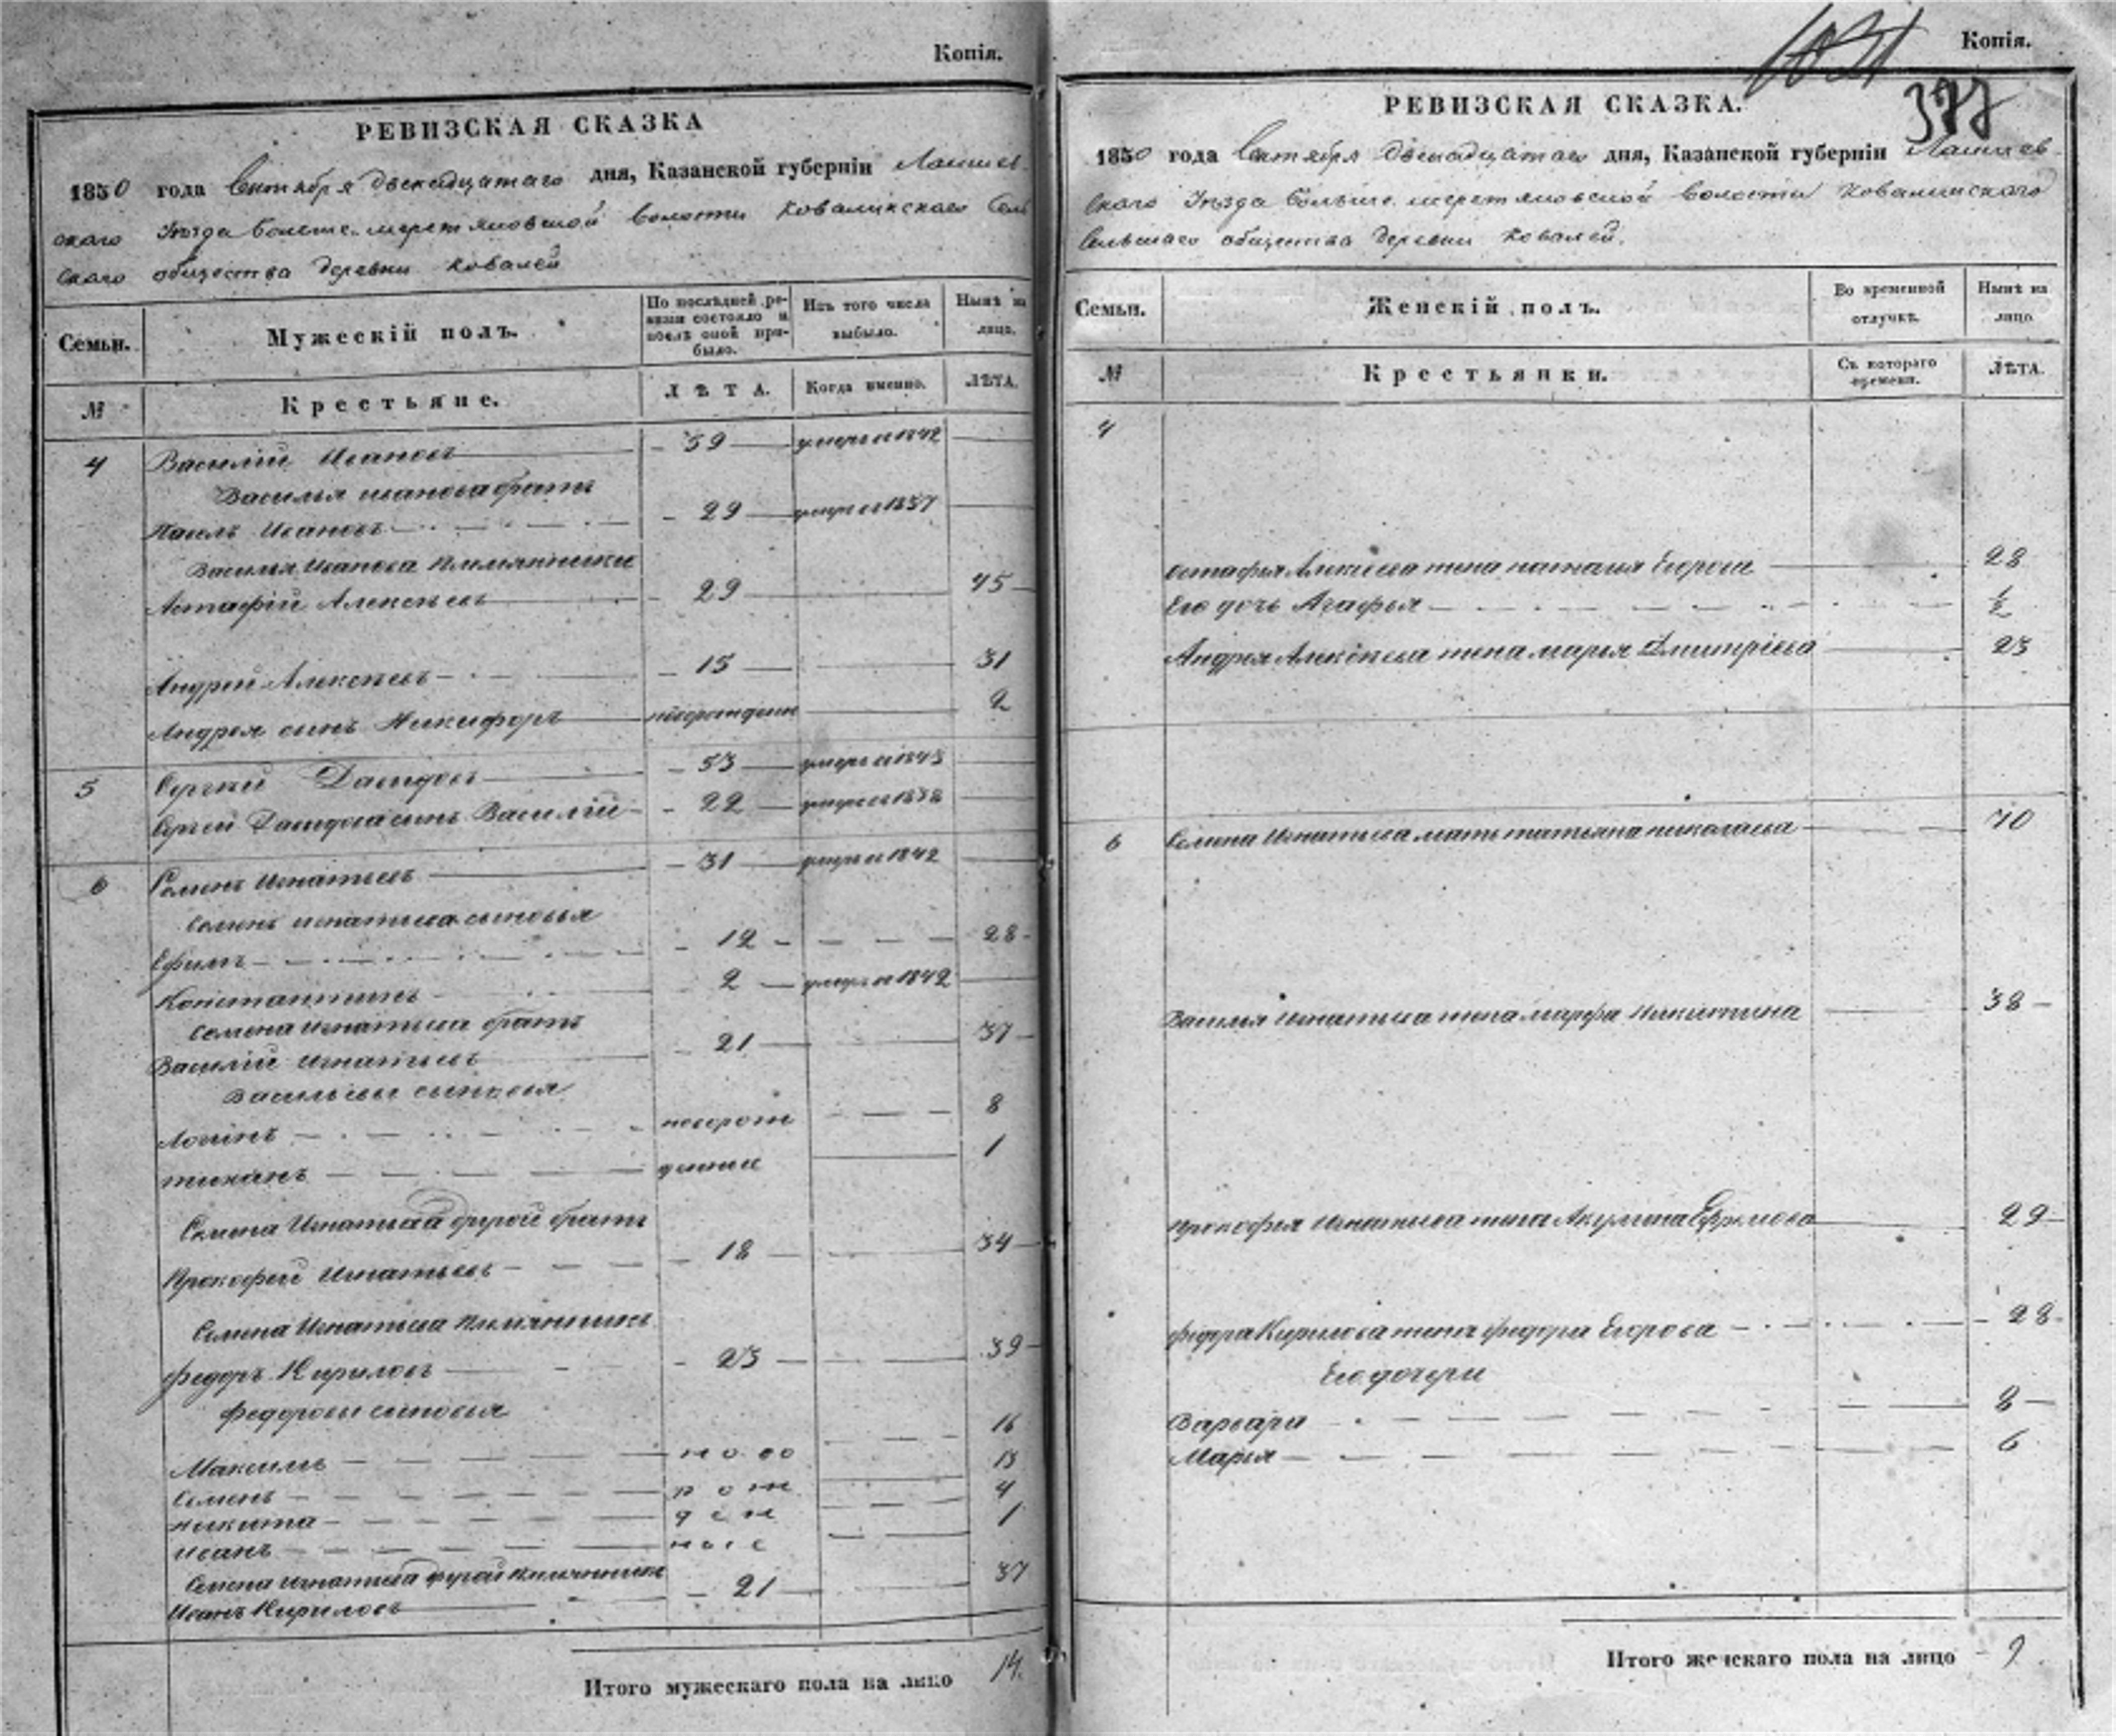 Копія.
РЕВИЗСКАЯ СКАЗКА
1850 года Сентября двенадцатаго дня, Казанской губерніи Лаишев-
скаго Уѣзда больше-меретяковской волости Ковалинскаго Сель
скаго общества деревни Ковалей
Семьи.
Мужескій полъ.
По послѣдней ре-
визіи состояло и
послѣ оной при-
было.
Изъ того числа
выбыло.
Нынѣ на
лицо.
№
Крестьяне.
ЛѢТА.
Когда именно.
ЛѢТА.
4 Василій Ивановъ 59 умеръ въ 1842
Василья иванова братъ
Павелъ Ивановъ 29 умеръ въ 1837
Василья Иванова племянники
Астафій Алексѣевъ 29 45
Андрей Алексѣевъ 15 31
Андрея сынъ Никифоръ новорожден 2
5 Сергѣй Давыдовъ 53 умеръ въ 1843
Сергѣя Давыдова сынъ Василій 22 умеръ въ 1838
6 Семенъ Игнатьевъ 31 умеръ въ 1842
Семена игнатьева сыновья
Ефимъ 12 28
Константинъ 2 умеръ въ 1842
Семена Игнатьева братъ
Василій Игнатьевъ 21 37
Васильевы сыновья
Логинъ новорож 8
денные 1
Семена Игнатьева другой братъ
Прокофей Игнатьевъ 18 34
Семена Игнатьева племянникъ
Федоръ Кириловъ 23 39
Федоровы сыновья
Максимъ ново 16
Семенъ рож 13
Никита ден 4
Иванъ ные 1
Семена Игнатьева другой племянникъ
Иванъ Кириловъ 21 37
Итого мужескаго пола на лицо 14.
Копія.
1031
377
РЕВИЗСКАЯ СКАЗКА.
1850 года Сентября двенадцатаго дня, Казанской губерніи Лаишев-
скаго Уѣзда больше-меретяковской волости Ковалинскаго
Сельскаго общества деревни Ковалей.
Семьи.
Женскій полъ.
Во временной
отлучкѣ.
Нынѣ на
лицо.
№
Крестьянки.
Съ котораго
времени.
ЛѢТА.
4
Астафья Алексѣева жена наталья Егорова 28
Его дочь Агафья ½
Андрея Алексѣева жена марья Дмитріева 23
6 Семена Игнатьева мать татьяна николаева 70
Василья Игнатьева жена марфа Никитина 38
Прокофья Игнатьева жена Акулина Ефремова 29
Федора Кирилова жена федора Егорова 28
Его дочери
Варвара 8
Марья 6
Итого женскаго пола на лицо 9.